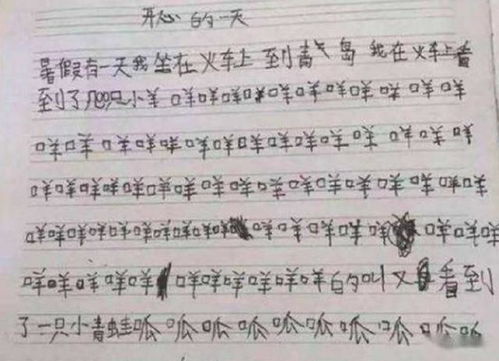 开心的一天
暑假有一天我坐在火车上到青气岛我在火车上看
到了几只小羊咩咩咩咩咩咩咩咩咩咩咩咩
咩咩咩咩咩咩咩咩咩咩咩咩咩咩咩咩
咩咩咩咩咩咩咩咩咩咩咩咩咩咩咩咩咩咩
咩咩咩咩咩咩咩咩咩咩咩咩咩咩咩咩咩
咩咩咩咩咩咩咩咩咩咩咩的叫又看到
了一只小青蛙呱呱呱呱呱呱呱呱呱